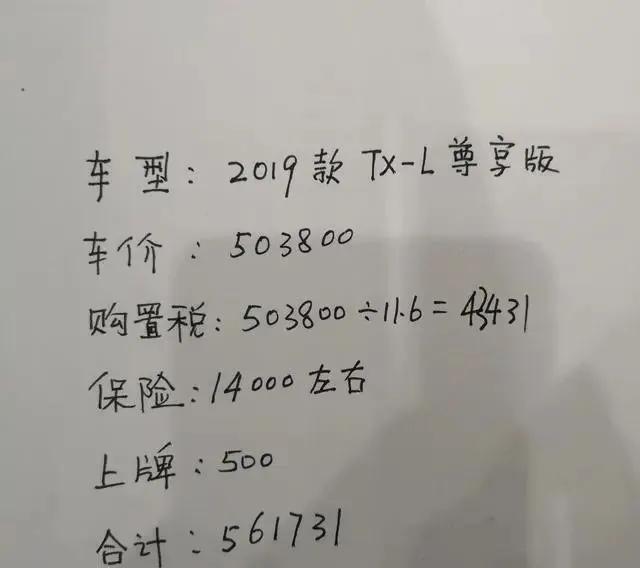 车型：2019款 TX-L 尊享版
车价：503800
购置税：503800÷11.6=43431
保险：14000左右
上牌：500
合计：561731